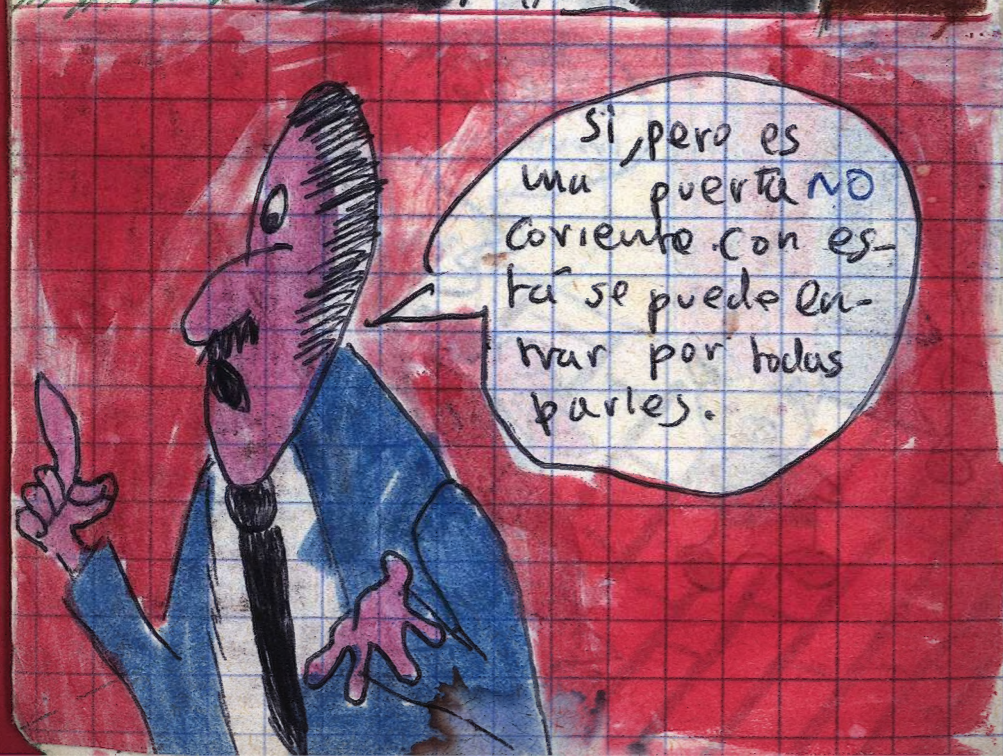 si, pero es
una puerta NO
coriente.con es-
tá se puede en-
trar por todas
partes.